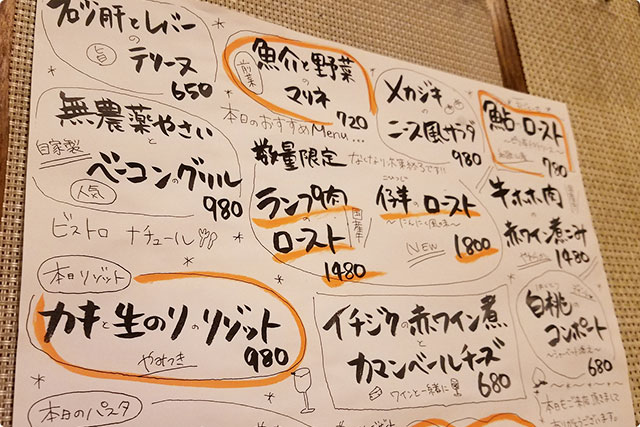 肝とレバー
の
テリーヌ
旨
650
魚介と野菜
の
マリネ
前菜
720
メカジキ
の
ニース風サラダ
980
鮎のロースト
780
無農薬やさい
と
自家製
ベーコンのグリル
人気
980
本日のおすすめMenu...
数量限定
なくなり次第終了です!!
ランプ肉
の
ロースト
国産牛
1480
仔羊のロースト
〜にんにく風味〜
NEW
1800
牛ホホ肉
の
赤ワイン煮こみ
1480
ビストロ ナチュール
本日リゾット
カキと生のりのリゾット
やみつき
980
イチジクの赤ワイン煮
と
カマンベールチーズ
ワインと一緒に
680
白桃
の
コンポート
680
本日のパスタ
本日もご来店頂きまして
ありがとうございます。